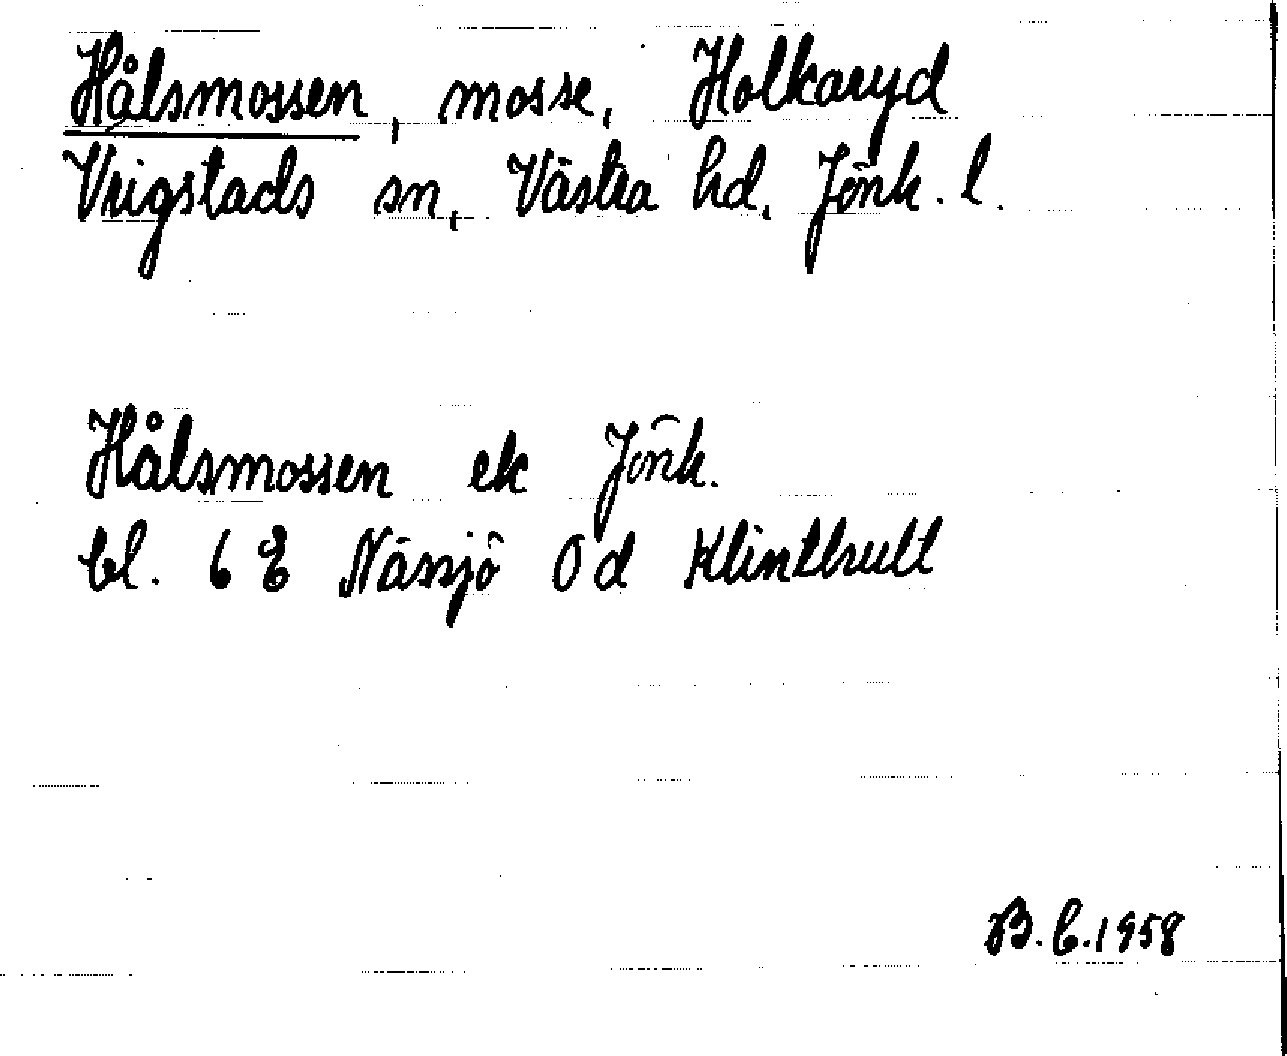 Hålsmossen, mosse, Holkaryd
Vrigstads sn, Västra hd, Jönk. l.
Hålsmossen ek Jönk.
bl. 6 E Nässjö 0 d Klinthult
B.C.1958